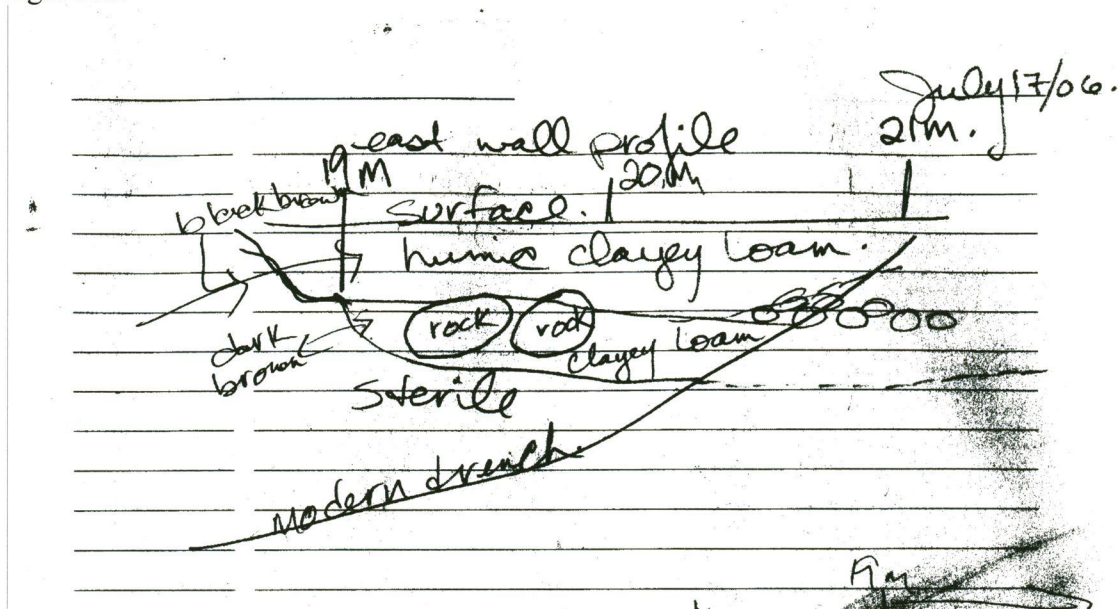 July 17/06.
east wall profile
19 M
20 M
21 m.
black brown
surface.
humic clayey loam.
rock
rock
clayey loam
dark
brown
sterile
Modern trench
19m